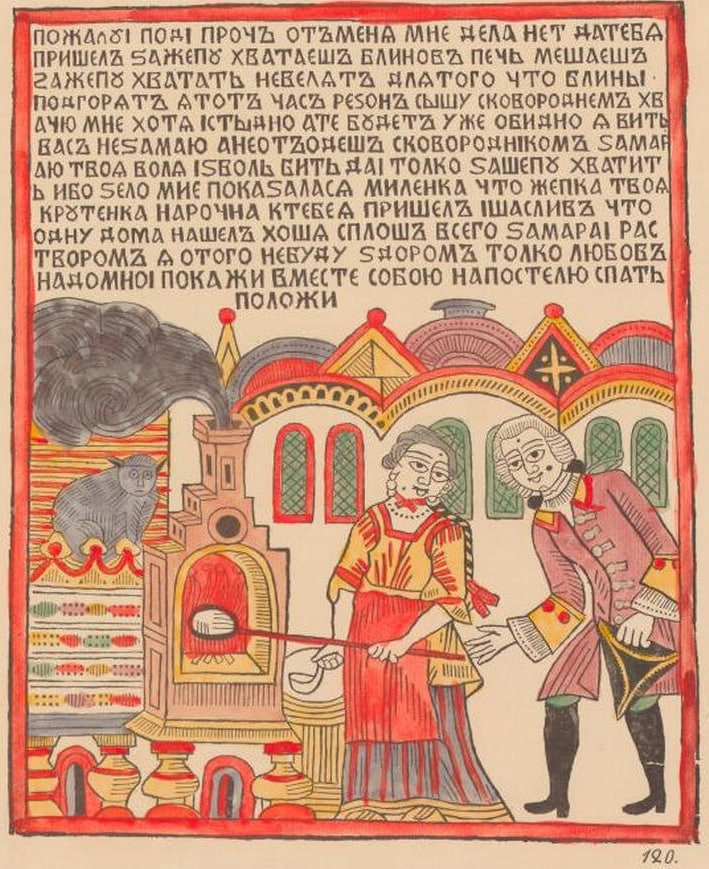 ПОЖАЛꙊІ ПОДІ ПРОЧЪ ОТЪМЕНЯ МНЕ ДЕЛА НЕТ ДАТЕБѦ
ПРИШЕЛЪ ЅАЖЕПꙊ ХВАТАЕШЪ БЛИНОВЪ ПЕЧЬ МЕШАЕШЪ
ЗАЖЕПꙊ ХВАТАТЬ НЕВЕЛЯТЪ ДЛЯТОГО ЧТО БЛИНЫ
ПОДГОРЯТЪ ѦТОТЪ ЧАСЪ РЕЅОНЪ СЫШУ СКОВОРОДНЕМЪ ХВ
АЧЮ МНЕ ХОТЯ ІСТЫДНО АТЕ БꙊДЕТЪ УЖЕ ОБИДНО Ѧ ВИТЬ
ВАСЪ НЕЅАМАЮ АНЕОТЪОДЕШЪ СКОВОРОДНІКОМЪ ЅАМАР
АЮ ТВОЯ ВОЛЯ ІЅВОЛЬ БИТЬ ДАІ ТОЛКО ЅАШЕПꙊ ХВАТИТ
Ь ИБО ЅЕЛО МИЕ ПОКАЅАЛАСѦ МИЛЕНКА ЧТО ЖЕПКА ТВОѦ
КРꙊТЕНКА НАРОЧНА КТЕБЕѦ ПРИШЕЛЪ ІШАСЛИВЪ ЧТО
ОДНУ ДОМА НАШЕЛЪ ХОШѦ СПЛОШЪ ВСЕГО ЅАМАРАІ РАС
ТВОРОМЪ Ѧ ОТОГО НЕБУДУ ЅДОРОМЪ ТОЛКО ЛЮБОВЪ
НАДОМНОІ ПОКАЖИ ВМЕСТЕ СОБОЮ НАПОСТЕЛЮ СПАТЬ
ПОЛОЖИ
120.